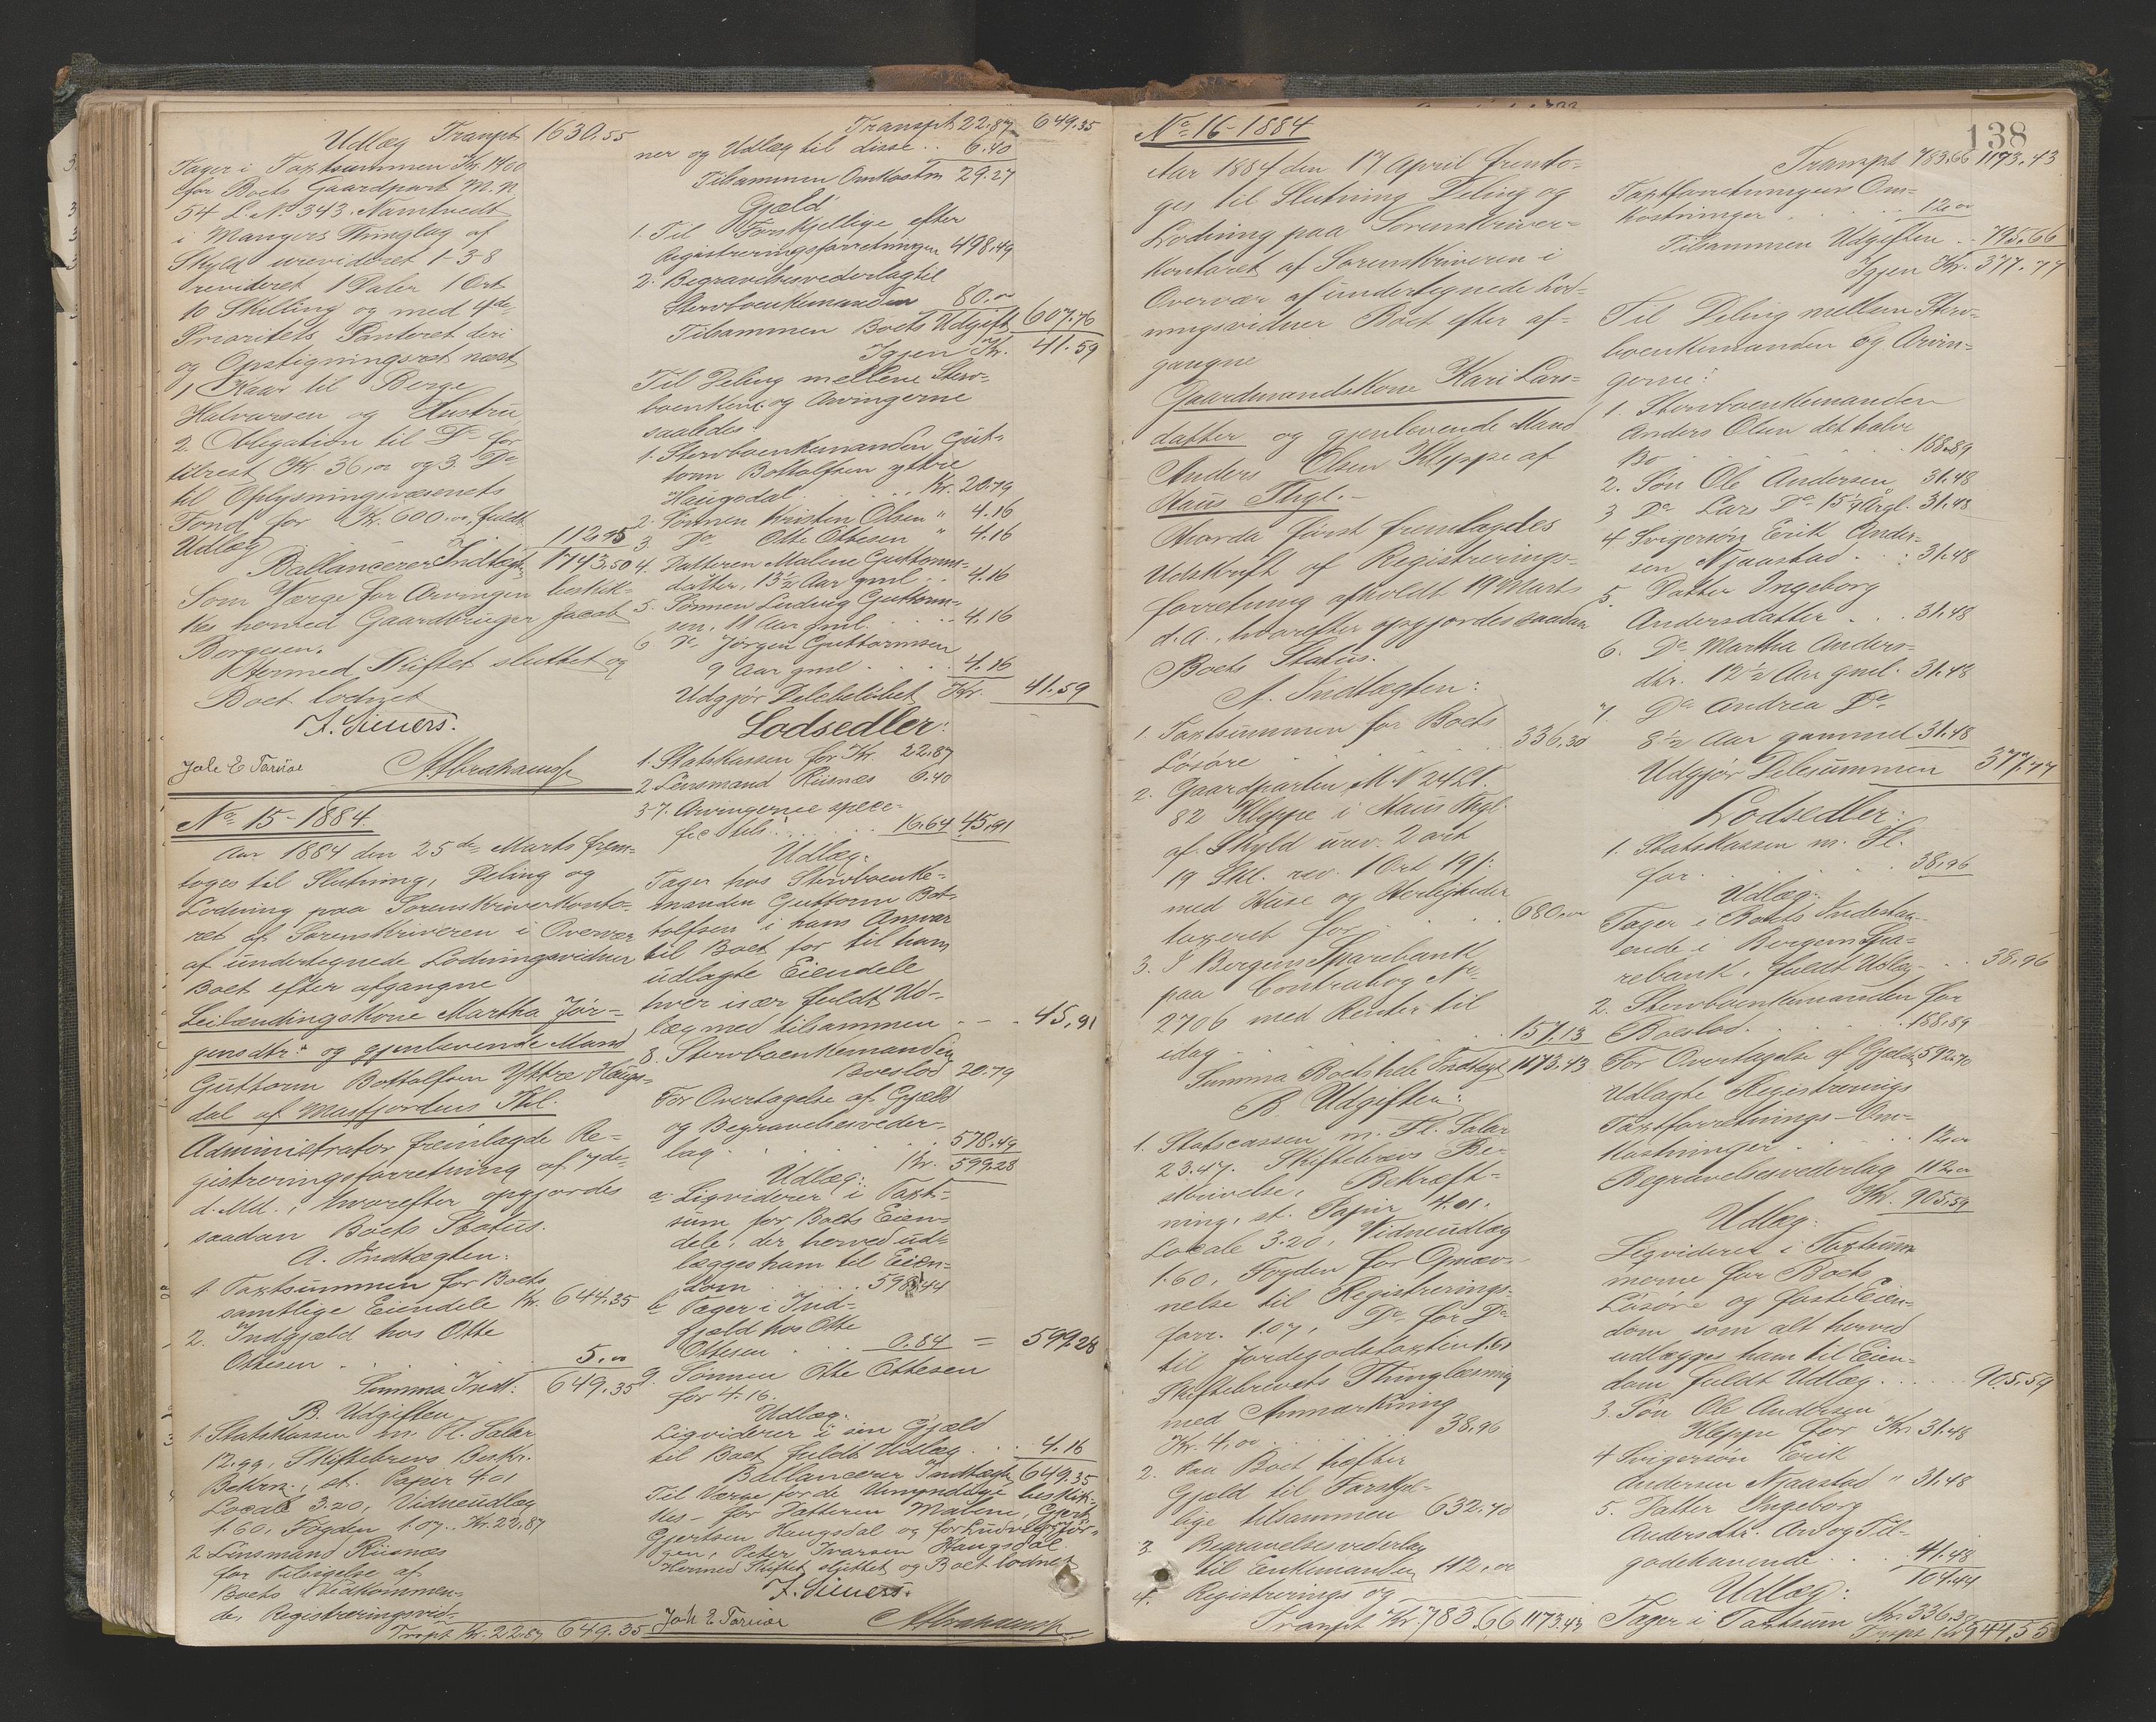 Udlæg Transpt 1630.55
Tager i Taxtsummen Kr. 1400
for Boets Gaardpart M. N.
54 L. No 343. Namtvedt
i Mangers Thinglag af
Skyld urevideret 1-3-8
revideret 1 Daler 1 Ort
10 Skilling og med 4de
Prioritets Panteret deri
og Opstigningsret næst
1, Kaar til Børge
Halvorsen og Hustru
2. Obligation til Do for
tilrest Kr. 36,00 og 3. Do
til Oplysningsvæsenets
Fond for Kr. 600.00, fuldt
Udlæg 112.95
Ballancerer Indtægt 1743.50
Som Værge for Arvingen beskik-
kes herved Gaardbruger Jacob
Børgesen.
Hermed Skiftet sluttet og
Boet lodnet
F. Siewers.
Joh E Tarvæ AAbrahams
No 15-1884.
Aar 1884 den 25de Marts frem-
toges til Slutning, Deling og
Lodning paa Sorenskriverkonto-
ret af Sorenskriveren i Overvær
af undertegnede Lodningsvidner
Boet efter afgangne
Leilændingskone Martha Jør-
gensdtr. og gjenlevende Mand
Guttorm Bottolfsen Yttre Haugs-
dal af Masfjordens Thl.
Administrator fremlagde Re-
gistreringsforretning af 7de
d. Md., hvorefter opgjordes
saadan Boets Status.
A. Indtægten:
1. Taxtsummen for Boets
samtlige Eiendele Kr. 644.35
2. Indgjæld hos Otte
Ottesen . . . 5.00
Summa Indt: 649.35
B. Udgiften
1. Statskassen m. Fl. Salær
12.99, Skiftebrevs Beskr.
Bekræ., st. Papir 4.01
Locale 3.20, Vidneudlæg
1.60, Fogden 1.07. Kr. 22.87
2. Lensmand Riisnæs
for Tilsigelse af
Boets Vedkommen-
de, Registreringsvid-
Trspt. Kr. 22.87 649.35
Transpt 22.87 649.35
ner og Udlæg til disse . . 6.40
Tilsammen Omkostn 29.27
Gjæld
1. Til Forskjellige efter
Registreringsforretningen 498.49
2. Begravelsesvederlag til
Stervboenkemanden 80.00
Tilsammen Boets Udgift 607.76
Igjen Kr. 41.59
Til Deling mellem Sterv-
boenkem. og Arvingerne
saaledes:
1. Stervboenkemanden Gut-
torm Bottolfsen yttre
Haugsdal . . . Kr. 20.79
2. Sønnen Kristen Olsen " 4.16
3. Do Otte Ottesen " 4.16
4. Datteren Malene Guttorms-
datter, 13½ Aar gml . . 4.16
5. Sønnen Ludvig Guttorm-
sen, 11 Aar gml. . . . 4.16
6 Do Jørgen Guttormsen
9 Aar gml . . . . 4.16
Udgjør Delebeløbet Kr. 41.59
Lodsedler:
1. Statskassen for Kr. 22.87
2 Lensmand Riisnæs 6.40
3-7. Arvingerne spece-
fic. tils: . . . . . 16.64 45.91
Udlæg:
Tager hos Stervboenke-
manden Guttorm Bot-
tolfsen i hans Ansvar
til Boet for til ham
udlagte Eiendele
hver især fuldt Ud-
læg med tilsammen . — . 45.91
8. Stervboenkemanden
Boeslod 20.79
For Overtagelse af Gjæld
og Begravelsesveder-
lag . . . . . 578.49
Kr. 599.28
Udlæg:
a. Liqviderer i Taxt-
sum for Boets Eien-
dele, der herved ud-
lægges ham til Eien-
dom . . . 598.44
b. Tager i Ind-
gjæld hos Otte
Ottesen . . . 0.84 = 599.28
9. Sønnen Otte Ottesen
for 4.16.
Udlæg:
Liqviderer i sin Gjæld
til Boet fuldt Udlæg . . 4.16
Ballancerer af Indtægten 649.35
Til Værge for de Umyndige beskik-
kes - for Datteren Malene, Gjert
Gjertsen Haugsdal og for Ludvig og Jør-
gen, Peter Ivarsen Haugsdal.
Hermed Skiftet sluttet og Boet lodnet
F. Siewers.
Joh E Tarvæ AAbrahams
138
No 16-1884
Aar 1884 den 17 April fremto-
ges til Slutning Deling og
Lodning paa Sorenskriver-
kontoret af Sorenskriveren i
Overvær af undertegnede Lod-
ningsvidner Boet efter af-
gangne
Gaardmandskone Kari Lars-
datter og gjenlevende Mand
Anders Olsen Kleppe af
Haus Thgl.-
Hvorda først fremlagdes
Udskrift af Registrerings-
forretning afholdt 19 Marts
d. A., hvorefter opgjordes saadan
Boets Status.
A. Indtægten:
1. Taxtsummen for Boets
Løsøre . . . 336.30
2. Gaardparten M. N 24 Lt.
82 Kleppe i Haus Thgl.
af Skyld urev. 2 ort
19 Skl. rev. 1 Ort 19 /:
med Huse og Herligheder
taxeret for . . . 680.00
3. I Bergens Sparebank
paa Contrabog No
2706 med Renter til
idag . . . . . 157.13
Summa Boets hele Indtægt 1173.43
B. Udgiften:
1. Statscassen m. Fl. Salær
23.47. Skiftebrevs Be-
skrivelse, Bekræft-
ning, st. Papir 4.01.
Locale 3.20, Vidneudlæg
1.60, Fogden for Opnæv-
nelse til Registrerings-
forr. 1.07, Do for Do
til Jordegodstaxten 1.61
Skiftebrevets Thinglæsning
med Anmærkning
Kr. 4,00 . . . . 38.96
2. Paa Boet hefter
Gjæld til Forskjel-
lige tilsammen 632.70
3. Begravelsesvederlag
til Enkemanden 112.00
4. Registrerings og
Transpt Kr. 783.66 1173.43
Transpt 783.66 1173.43
Taxtforretningens Om-
kostninger . . . 12.00
Tilsammen Udgiften . . 795.66
Igjen Kr. 377.77
Til Deling mellem Sterv-
boenkemanden og Arvin-
gerne:
1. Stervboenkemanden
Anders Olsen det halve
Bo . . . . . 188.89
2. Søn Ole Andersen 31.48
3 Do Lars Do 15½ Aar gl. 31.48
4 Svigersøn Erik Ander-
sen Njaastad . . . 31.48
5. Datter Ingeborg
Andersdatter . . . 31.48
6. Do Martha Anders-
dtr. 12½ Aar gml. 31.48
7 Do Andrea Do
8½ Aar gammel 31.48
Udgjør Delesummen 377.77
Lodsedler:
1. Statskassen m. Fl.
for . . . . . 38.96
Udlæg:
Tager i Boets Indestaa-
ende i Bergens Spa-
rebank, fuldt Udlæg . . 38.96
2. Stervboenkemanden for
Boeslod . . . . . 188.89
For Overtagelse af Gjælden 592.70
Udlagte Registrerings
Taxtforretnings-Om-
kostninger . . . 12.00
Begravelsesvederlag 112.00
Kr. 905.59
Udlæg:
Liqviderer i Taxtsum-
merne for Boets
Løsøre og faste Eien-
dom som alt herved
udlægges ham til Eien-
dom, fuldt Udlæg . . . . 905.59
3. Søn Ole Andersen
Kleppe for Kr. 31.48
4 Svigersøn Erik
Andersen Njaastad " 31.48
5. Datter Ingeborg
Andersdtr. Arv og Til-
godehavende . . . 41.48
104.44
Udlæg:
Tager i Taxtsum Kr. 336.30
Trspt Kr 944.55